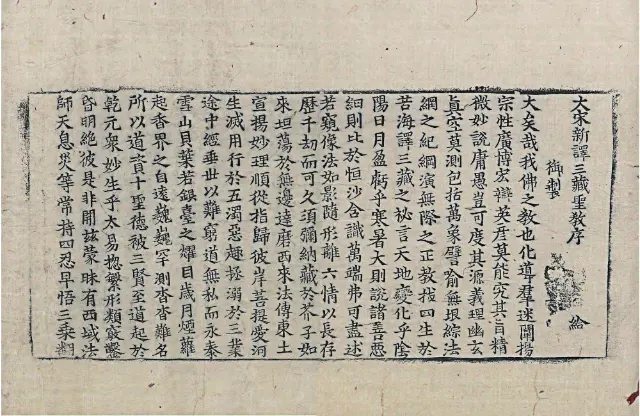 大宋新譯三藏聖敎序
御製
給
大矣哉我佛之敎也化導羣迷闡揚
宗性廣博宏辯英彥莫能究其旨精
微妙說庸愚豈可度其源義理幽玄
眞空莫測包括萬象譬喻無垠綜法
網之紀綱演無際之正敎拔四生於
苦海譯三藏之祕言天地變化乎陰
陽日月盈虧乎寒暑大則說諸善惡
細則比於恒沙含識萬端弗可盡述
若窺像法如影隨形離六情以長存
歷千劫而可久須彌納藏於芥子如
來坦蕩於無邊達磨西來法傳東土
宣揚妙理順從指歸彼岸菩提愛河
生滅用行於五濁惡趣拯溺於三業
途中經垂世以難窮道無私而永泰
雪山貝葉若銀臺之耀目歲月煙蘿
起香界之自遠巍巍罕測杳杳難名
所以道資十聖德被三賢至道起於
乾元衆妙生乎太易揔繁形類竅鑿
昏明絶彼是非開兹蒙昧有西域法
師天息災等常持四忍早悟三乘翻